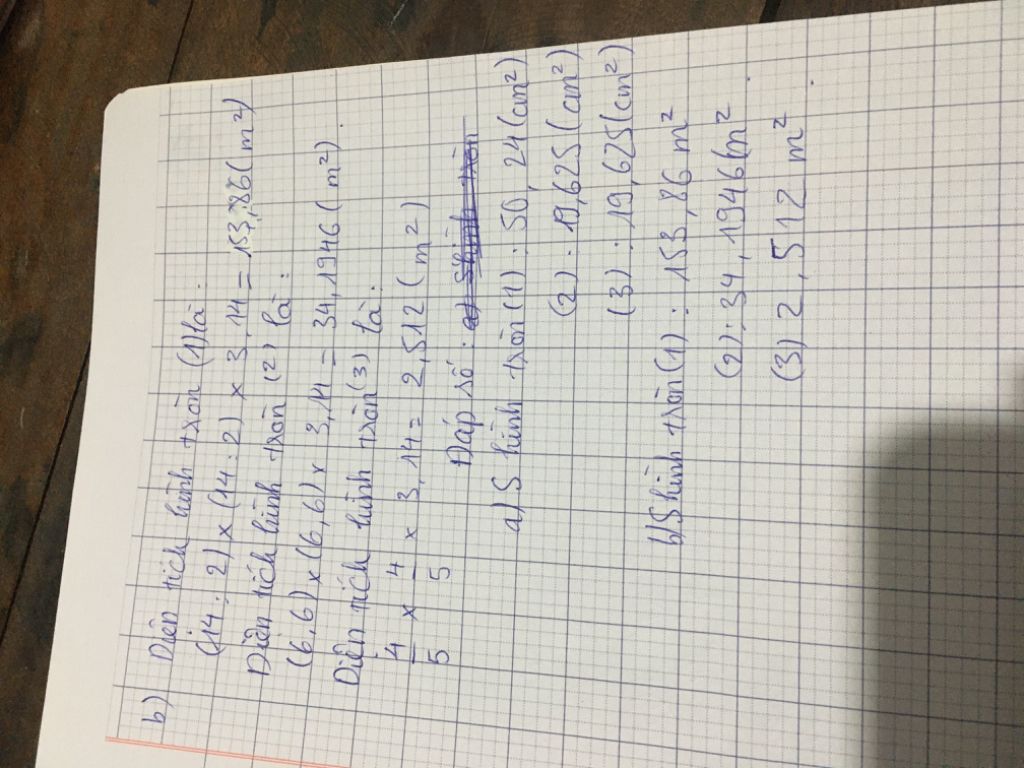 b) Diện tích hình tròn (1) là:
(14 : 2) x (14 : 2) x 3,14 = 153,86 (m²)
Diện tích hình tròn (2) là:
(6,6) x (6,6) x 3,14 = 34,1946 (m²)
Diện tích hình tròn (3) là:
4/5 x 4/5 x 3,14 = 2,512 (m²)
Đáp số: a) S hình tròn
a) S hình tròn (1) : 50,24 (cm²)
(2) : 19,625 (cm²)
(3) : 19,625 (cm²)
b) S hình tròn (1) : 153,86 m²
(2) : 34,1946 m²
(3) 2,512 m²